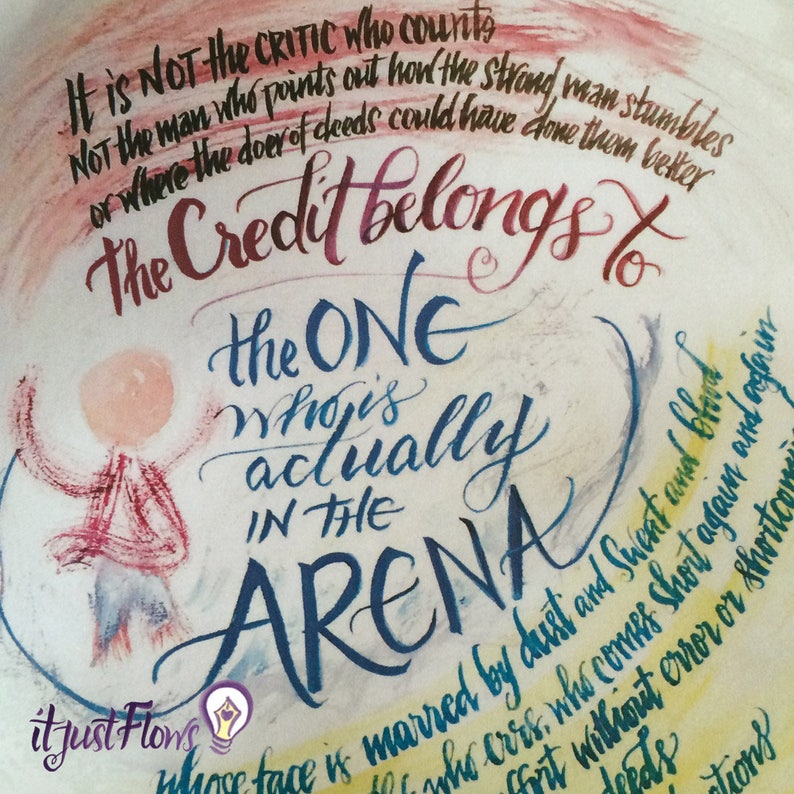 It is NOT the CRITIC who counts
NOT the man who points out how the strong man stumbles
or where the doer of deeds could have done them better
the Credit belongs to
the ONE
who is
actually
IN THE
ARENA
whose face is marred by dust and sweat and blood
who errs, who comes short again and again
effort without error or shortcoming
deeds
it just Flows